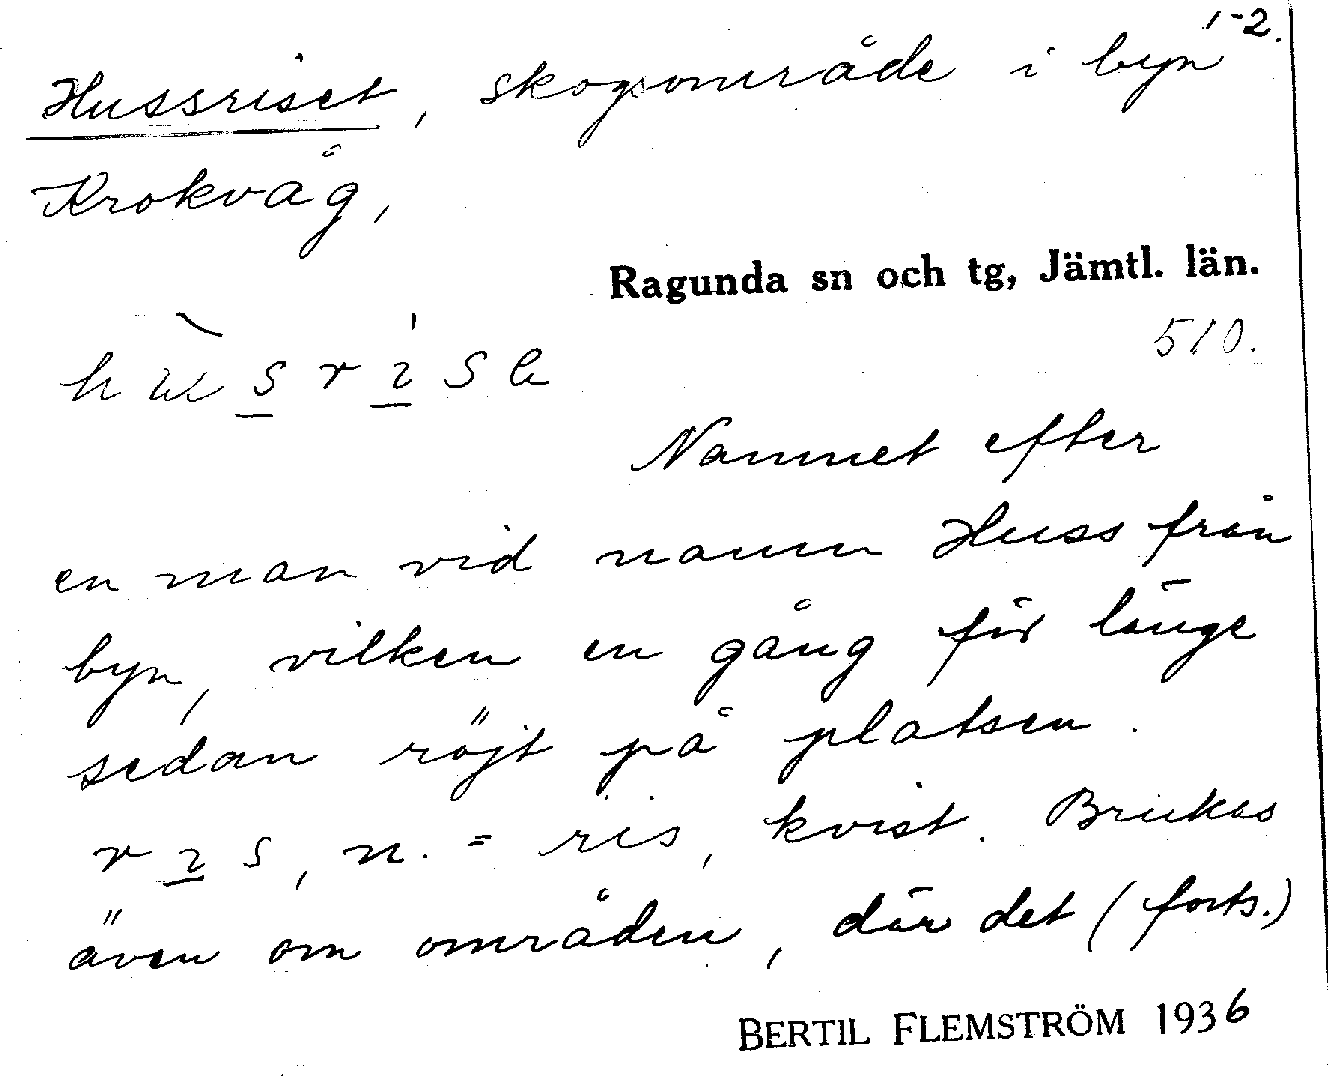 1-2.
Hussriset, skogsområde i byn
Krokvåg,
Ragunda sn och tg, Jämtl. län.
510.
Namnet efter
en man vid namn Huss från
byn, vilken en gång för länge
sedan röjt på platsen.
rıs, n. = ris, kvist. Brukas
även om områden, där det (forts.)
BERTIL FLEMSTRÖM 1936